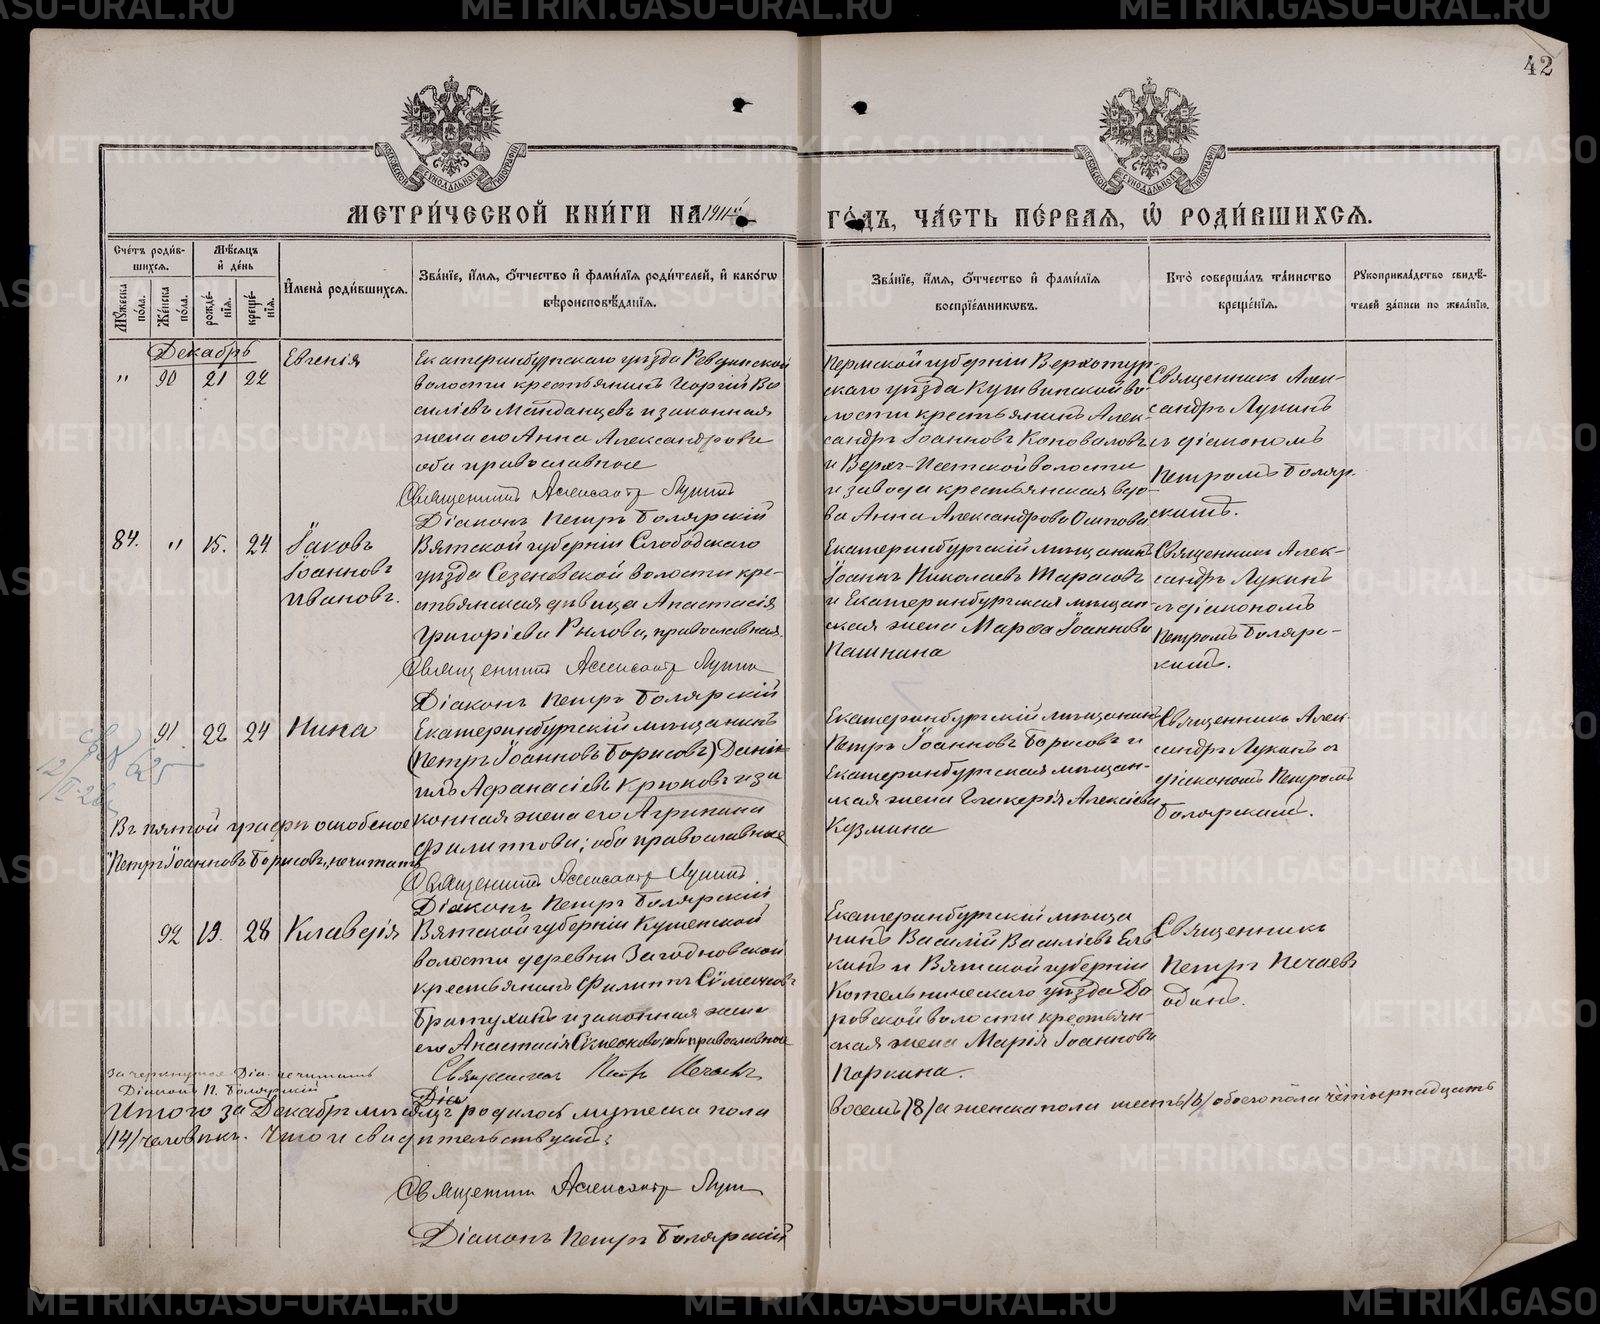 42
МОСКОВСКОЙ СѴНОДАЛЬНОЙ ТИПОГРАФІИ
МОСКОВСКОЙ СѴНОДАЛЬНОЙ ТИПОГРАФІИ
МЕТРИ́ЧЕСКОЙ КНИ́ГИ НА 1911й ГО́ДЪ, ЧА́СТЬ ПЕ́РВАЯ, Ѡ҆ РОДИ́ВШИХСЯ.
Сче́тъ роди́в-
шихся.
Мꙋ́жеска по́ла.
Же́нска по́ла.
Мѣ́сяцъ и҆ де́нь
рожде́нїя.
креще́нїя.
И҆мена̀ роди́вшихся.
Зва́нїе, и҆́мя, ѻ҆́тчество и҆ фами́лїя роди́телей, и҆ како́гѡ
вѣроисповѣ́данїя.
Зва́нїе, и҆́мя, ѻ҆́тчество и҆ фами́лїя
воспрїе́мникѡвъ.
Кто̀ соверша́лъ та́инство
креще́нїя.
Рꙋкоприкла́дство свидѣ́-
телей за́писи по жела́нїю.
Декабрь
" 90 21 22 Евгенія
Екатеринбургскаго уѣзда Ревдинской
волости крестьянинъ Георгій Ва
силіевъ Матданцевъ и законная
жена его Анна Александрова
оба православные
Священникъ Александръ Лукинъ
Діаконъ Петръ Боляркскій
Пермской губерніи Верхотур
скаго уѣзда Кушвинской во-
лости крестьянинъ Алек-
сандръ Іоанновъ Коноваловъ
и Верхъ-Исетской волости
и завода крестьянская вдо-
ва Анна Александрова Осипова
Священникъ Алек-
сандръ Лукинъ
съ діакономъ
Петромъ Боляр-
скимъ.
84. " 15. 24 Іаковъ
Іоанновъ
Ивановъ.
Вятской губерніи Слободскаго
уѣзда Сезеневской волости кре-
стьянская дѣвица Анастасія
Григоріева Рылова, православная.
Священникъ Александръ Лукинъ
Діаконъ Петръ Болярскій
Екатеринбургскій мѣщанинъ
Іоаннъ Николаевъ Тарасовъ
и Екатеринбургская мѣщан-
ская жена Марѳа Іоаннова
Пашнина
Священникъ Алек-
сандръ Лукинъ
съ діакономъ
Петромъ Болярс-
кимъ.
91 22 24 Нина
Екатеринбургскій мѣщанинъ
(Петръ Іоанновъ Борисовъ) Дани-
илъ Аѳанасіевъ Крюковъ и за
конная жена его Агрипина
Филиппова; оба православные
Священникъ Александръ Лукинъ
Діаконъ Петръ Болярскій
Екатеринбургскій мѣщанинъ
Петръ Іоанновъ Борисовъ и
Екатеринбургская мѣщан-
ская жена Гликерія Алексіева
Кузмина
Священникъ Алек-
сандръ Лукинъ съ
діакономъ Петромъ
Болярскимъ.
625
Въ пятой графѣ оскобленое
"Петръ Іоанновъ Борисовъ, не читать
92 19. 28 Клавдія
Вятской губерніи Кушенской
волости деревни Загодновской
крестьянинъ Филиппъ Сѵмеоновъ
Братухинъ и законная жена
его Анастасія Сѵмеонова; оба православные
Священникъ Петръ Нечаевъ
Діа
Екатеринбургскій мѣща
нинъ Василій Василіевъ Ель
кинъ и Вятской губерніи
Котельническаго уѣзда Да
ровской волости крестьян-
ская жена Марія Іоаннова
Поркина.
Священникъ
Петръ Нечаевъ
одинъ.
Зачеркнутое Діа. не читать
Діаконъ П. Болярскій
Итого за Декабрь мѣсяцъ родилось мужеска пола восемь /8/ а женска пола шесть /6/ обоего пола четырнадцать
/14/ человѣкъ. Что и свидѣтельствуемъ:
Священникъ Александръ Лукинъ
Діаконъ Петръ Болярскій
METRIKI.GASO-URAL.RU